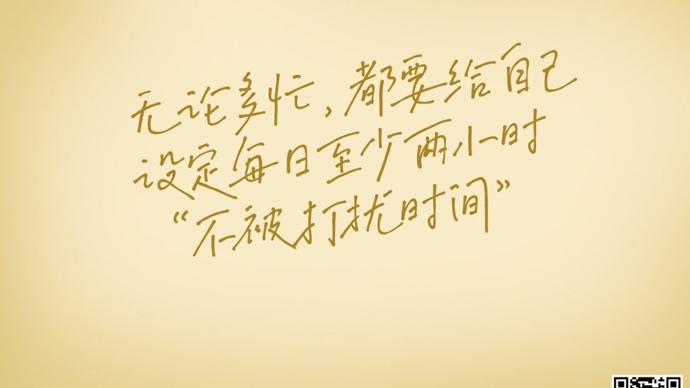 无论多忙，都要给自己
设定每日至少两小时
“不被打扰时间”